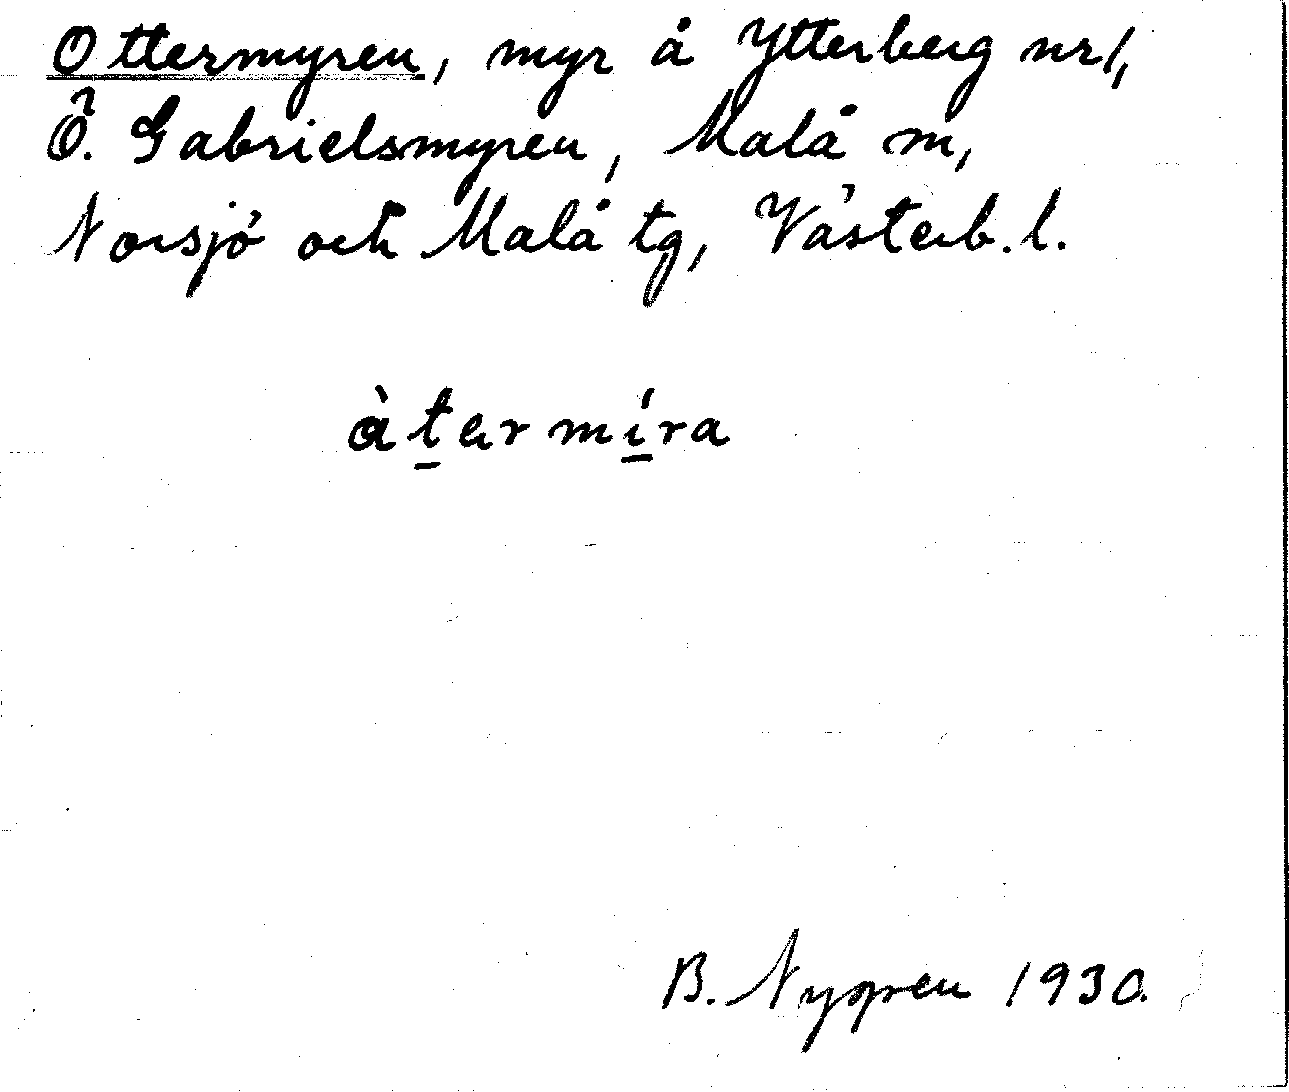 Ottermyren, myr å Ytterberg nr 1,
Ö. Gabrielsmyren, Malå m,
Norsjö och Malå tg, Västerb. l.
àt̲ermí̲ra
B. Nygren 1930.